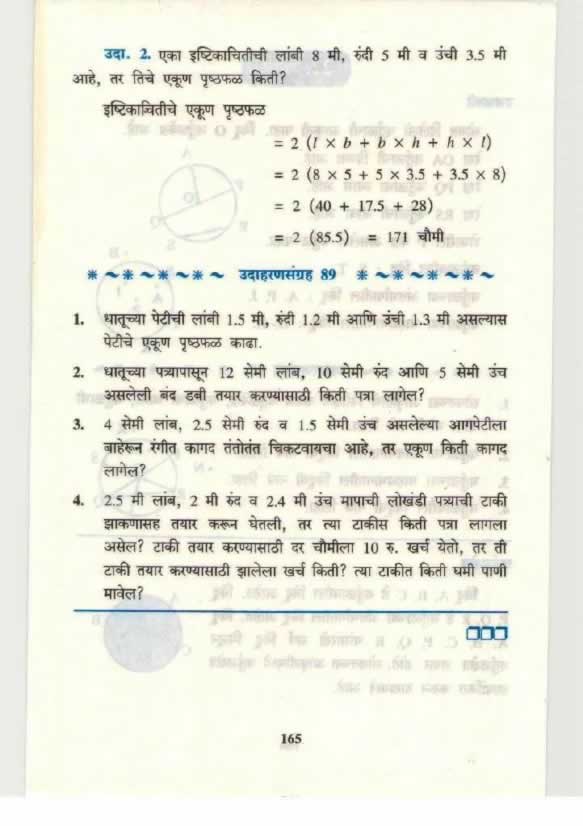 उदा. 2. एका इष्टिकाचितीची लांबी 8 मी, रुंदी 5 मी व उंची 3.5 मी
आहे, तर तिचे एकूण पृष्ठफळ किती?
इष्टिकाचितीचे एकूण पृष्ठफळ
= 2 (l × b + b × h + h × l)
= 2 (8 × 5 + 5 × 3.5 + 3.5 × 8)
= 2 (40 + 17.5 + 28)
= 2 (85.5) = 171 चौमी
उदाहरणसंग्रह 89
1. धातूच्या पेटीची लांबी 1.5 मी, रुंदी 1.2 मी आणि उंची 1.3 मी असल्यास
पेटीचे एकूण पृष्ठफळ काढा.
2. धातूच्या पत्र्यापासून 12 सेमी लांब, 10 सेमी रुंद आणि 5 सेमी उंच
असलेली बंद डबी तयार करण्यासाठी किती पत्रा लागेल?
3. 4 सेमी लांब, 2.5 सेमी रुंद व 1.5 सेमी उंच असलेल्या आगपेटीला
बाहेरून रंगीत कागद तंतोतंत चिकटवायचा आहे, तर एकूण किती कागद
लागेल?
4. 2.5 मी लांब, 2 मी रुंद व 2.4 मी उंच मापाची लोखंडी पत्र्याची टाकी
झाकणासह तयार करून घेतली, तर त्या टाकीस किती पत्रा लागला
असेल? टाकी तयार करण्यासाठी दर चौमीला 10 रु. खर्च येतो, तर ती
टाकी तयार करण्यासाठी झालेला खर्च किती? त्या टाकीत किती घमी पाणी
मावेल?
165